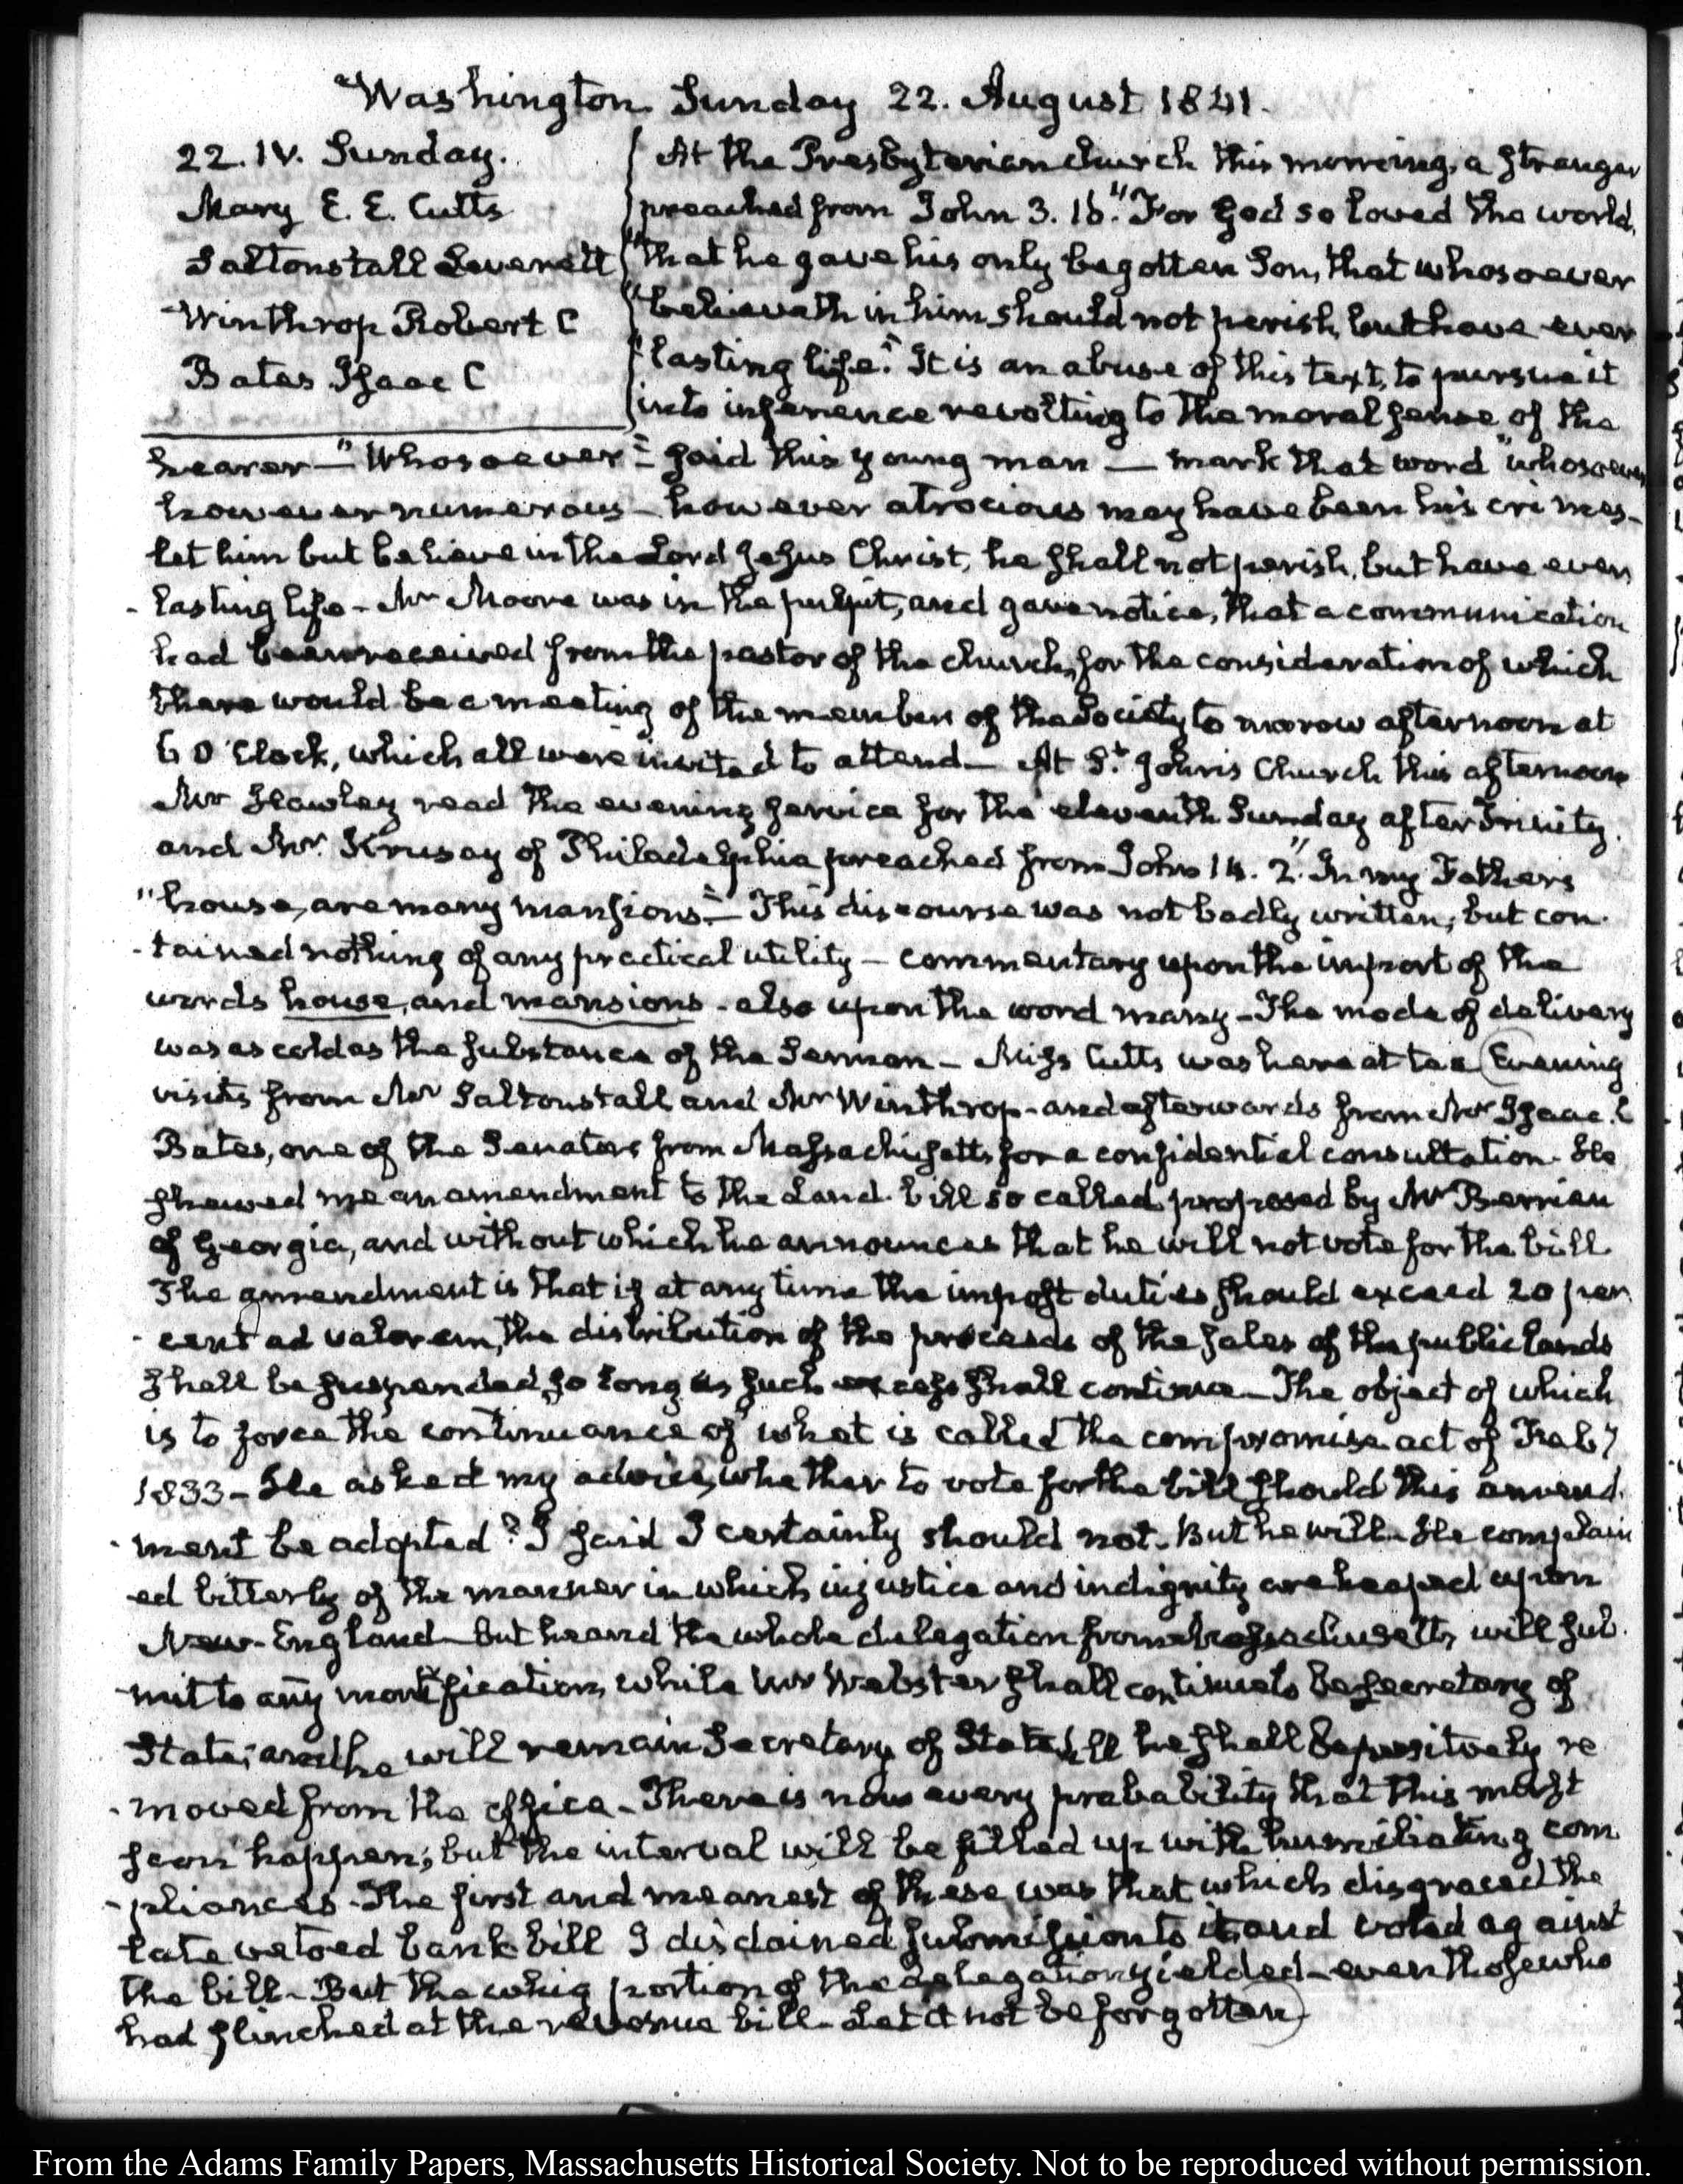 Washington Sunday 22. August 1841.
22. IV. Sunday.
Mary E. E. Cutts
Saltonstall Leverett
Winthrop Robert C
Bates Isaac C
At the Presbyterian church this morning, a stranger
preached from John 3. 16. "For God so loved the world,
"that he gave his only begotten Son, that whosoever
"believeth in him should not perish, but have ever
"lasting life." It is an abuse of this text, to pursue it
into inference revolting to the moral sense of the
hearer — "Whosoever" said this young man — mark that word "whosoever
however numerous — however atrocious may have been his crimes —
let him but believe in the Lord Jesus Christ, he shall not perish, but have ever
-lasting life — Mr Moore was in the pulpit, and gave notice, that a communication
had been received from the pastor of the church, for the consideration of which
there would be a meeting of the members of the Society to morrow afternoon at
6 O'Clock, which all were invited to attend — At St. John's Church this afternoon
Mr Hawley read the evening service for the eleventh Sunday after Trinity.
and Mr. of Philadelphia preached from John 14. 2. "In my Father's
"house, are many mansions." — This discourse was not badly written, but con-
-tained nothing of any practical utility — commentary upon the import of the
words house, and mansions — also upon the word many — The mode of delivery
was as cold as the substance of the Sermon — Miss Cutts was here at tea (Evening
visits from Mr Saltonstall and Mr Winthrop — and afterwards from Mr Isaac. C
Bates, one of the Senators from Massachusetts for a confidential consultation. He
shewed me an amendment to the Land-bill so called, proposed by Mr Berrien
of Georgia, and without which he announces that he will not vote for the bill.
The amendment is that if at any time the impost duties should exceed 20 per
-cent ad valorem, the distribution of the proceeds of the sales of the public lands
shall be suspended, so long as such excess shall continue — The object of which
is to force the continuance of what is called the compromise act of Feby
1833 — He asked my advice, whether to vote for the bill should this amend-
-ment be adopted? I said I certainly should not. But he will. He complain
-ed bitterly of the manner in which injustice and indignity are heaped upon
New-England — but he and the whole delegation from Massachusetts, will sub-
-mit to any mortification, while Mr Webster shall continue to be Secretary of
State; and he will remain Secretary of State till he shall be positively re
-moved from the office — There is now every probability that this must
soon happen; but the interval will be filled up with humiliating com
-pliances — The first and meanest of these was that which disgraced the
late vetoed bank bill I disdained submission to it and voted against
the bill — But the whig portion of the delegation yielded — even those who
had flinched at the revenue bill — Let it not be forgotten)
From the Adams Family Papers, Massachusetts Historical Society. Not to be reproduced without permission.